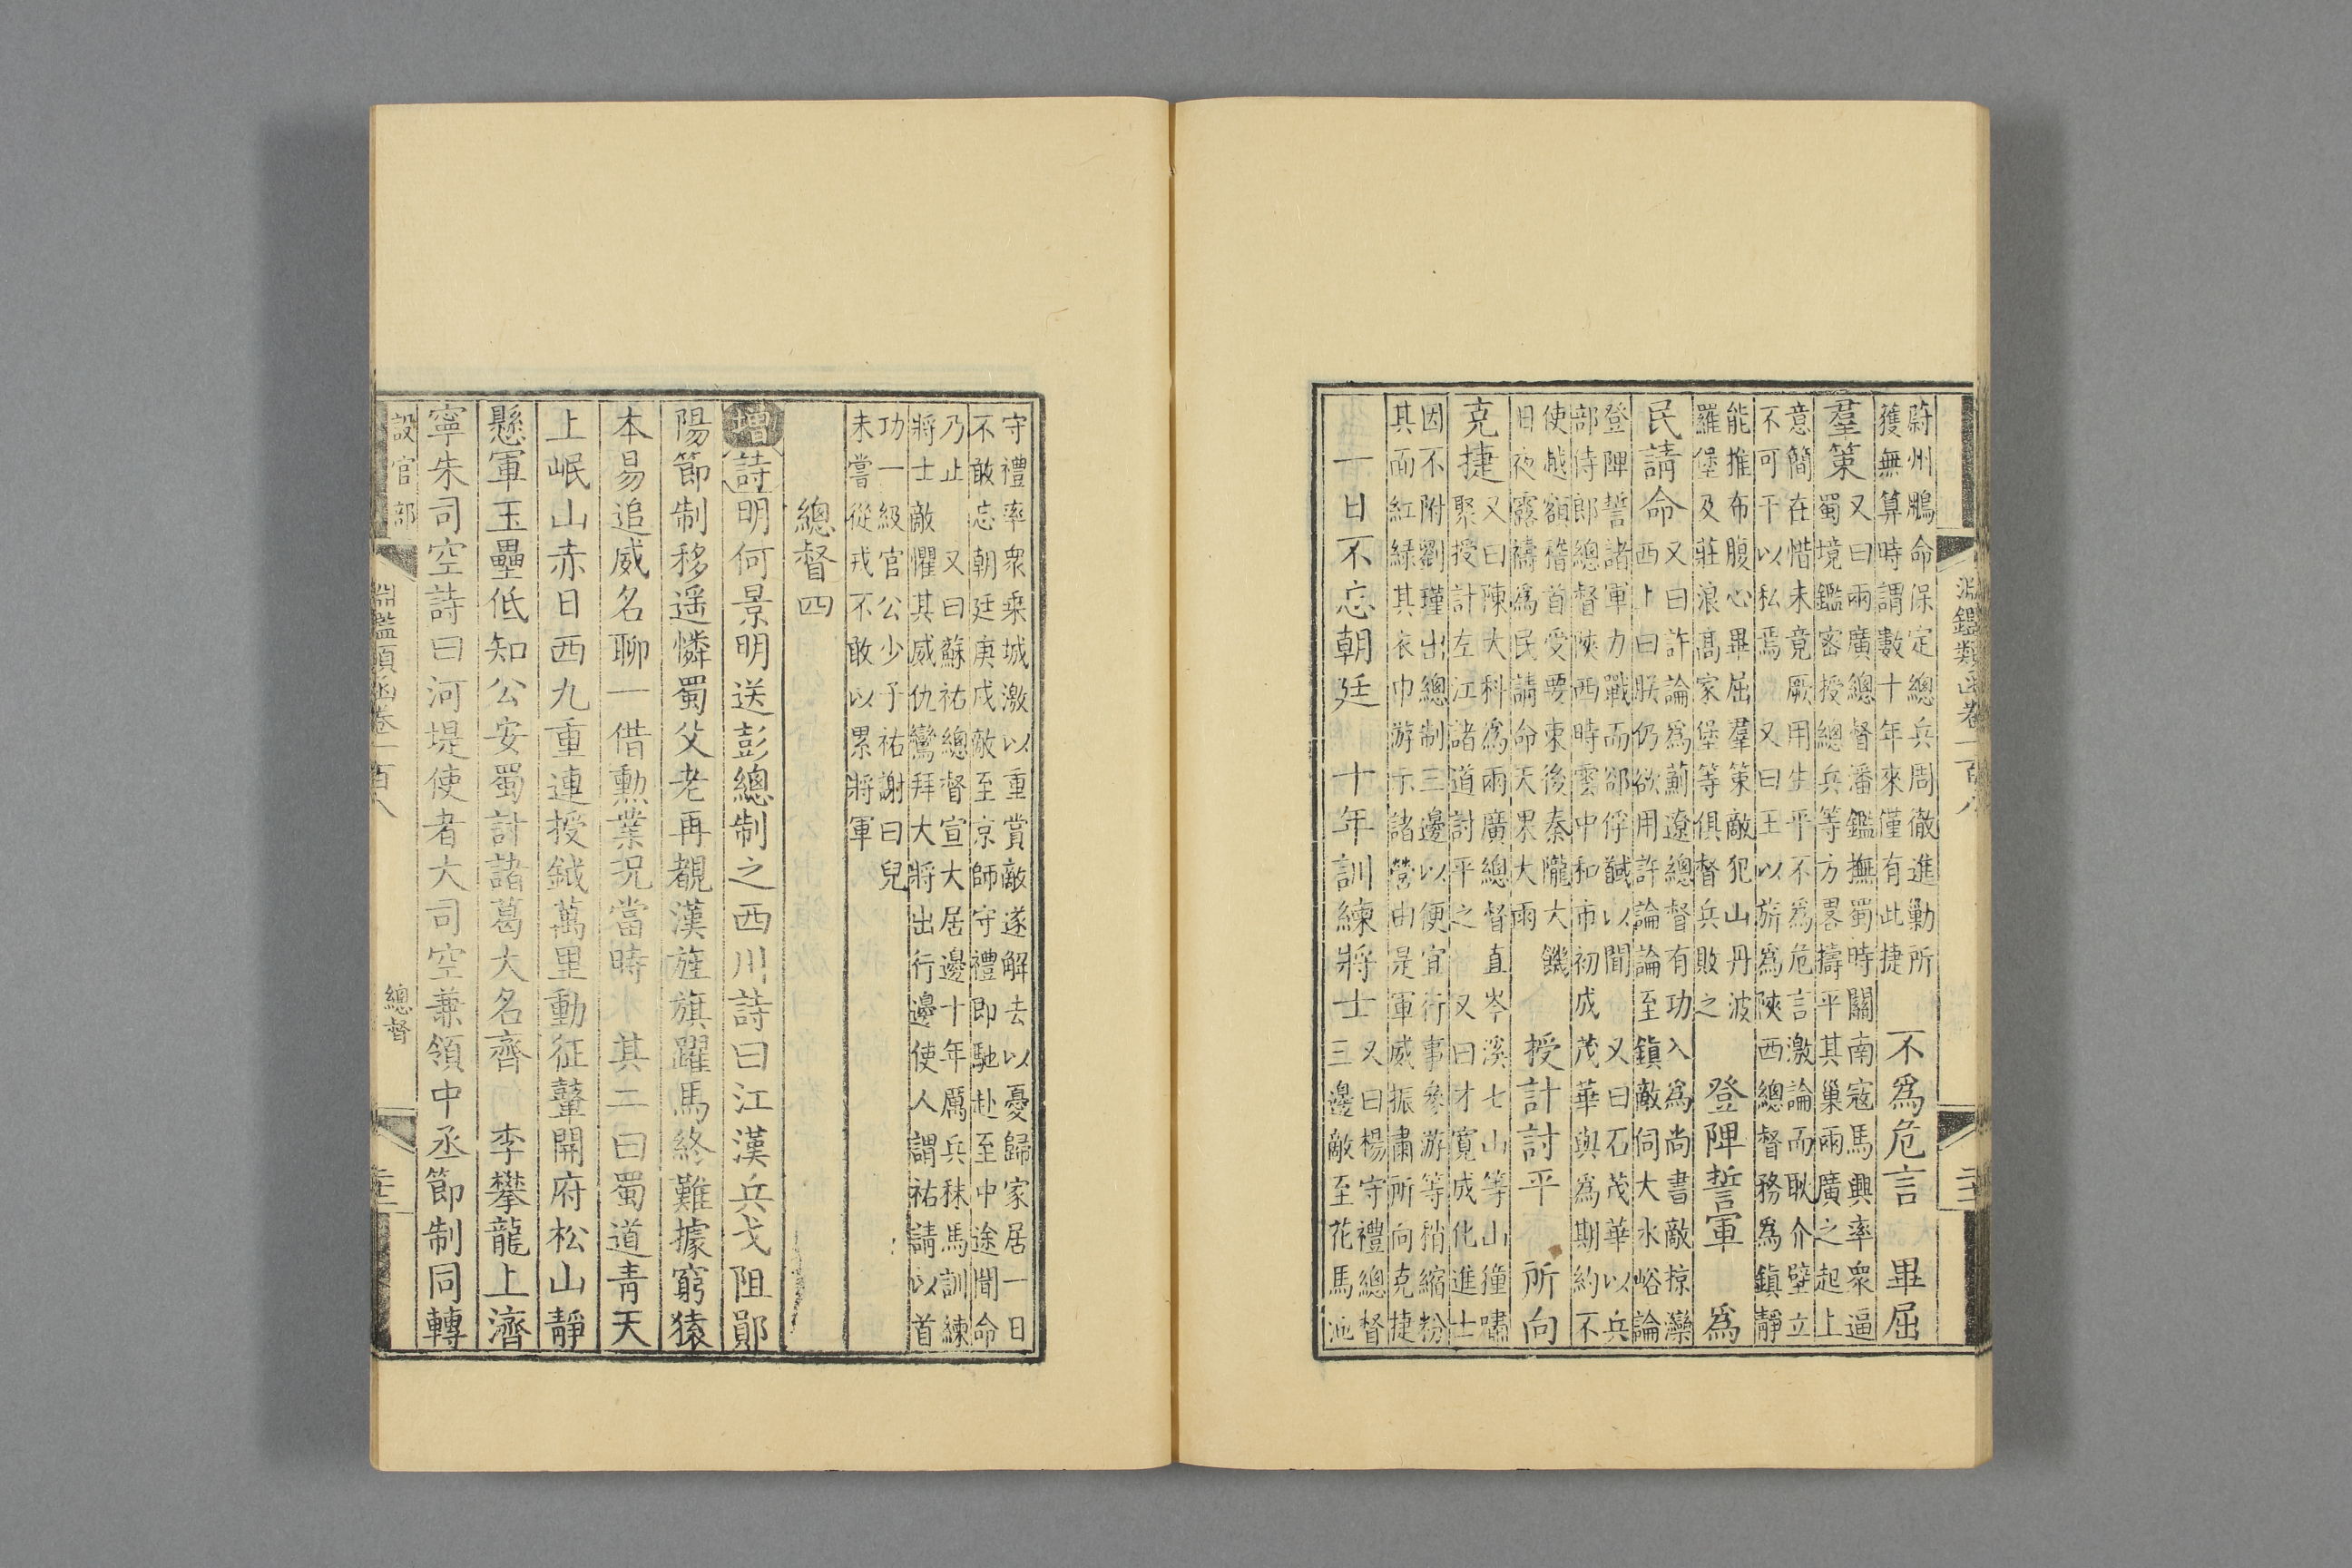 淵鑑類函卷一百八
蔚州鵬命保定總兵周徹進勦所
獲無算時謂數十年來僅有此捷
不爲危言　畢屈
羣策
又曰兩廣總督潘鑑撫蜀時關南寇馬興率衆逼
蜀境鑑密授總兵等方畧擣平其巢兩廣之起上
意簡在惜未竟厥用生平不爲危言激論而耿介壁立
不可干以私焉　又曰王以旂爲陝西總督務爲鎮靜
能推布腹心畢屈羣策敵犯山丹波
羅堡及莊浪高家堡等俱督兵敗之
登陴誓軍　爲
民請命
又曰許論爲薊遼總督有功入爲尚書敵掠灤
西上曰朕仍欲用許論論至鎮敵伺大水峪論
登陴誓諸軍力戰而郤俘馘以聞　又曰石茂華以兵
部侍郎總督陝西時雲中和市初成茂華與爲期約不
使越額稽首受要束後秦隴大饑
日夜露禱爲民請命天果大雨
授計討平　所向
克捷
又曰陳大科爲兩廣總督直岑溪七山等山獞嘯
聚授計左江諸道討平之　又曰才寬成化進士
因不附劉瑾出總制三邊以便宜行事參游等稍縮朒
其面紅綠其衣巾游示諸營由是軍威振肅所向克捷
一日不忘朝廷　十年訓練將士
又曰楊守禮總督
三邊敵至花馬池
守禮率衆乘城激以重賞敵遂解去以憂歸家居一日
不敢忘朝廷庚戌敵至京師守禮即馳赴至中途聞命
乃止　又曰蘇祐總督宣大居邊十年厲兵秣馬訓練
將士敵懼其威仇鸞拜大將出行邊使人謂祐請以首
功一級官公少子祐謝曰兒
未嘗從戎不敢以累將軍
總督四
增詩明何景明送彭總制之西川詩曰江漢兵戈阻鄖
陽節制移遥憐蜀父老再覩漢旌旗躍馬終難據窮猿
本易追威名聊一借勳業況當時　其二曰蜀道青天
上岷山赤日西九重連授鉞萬里動征鼙開府松山靜
懸軍玉壘低知公安蜀計諸葛大名齊　李攀龍上濟
寧朱司空詩曰河堤使者大司空兼領中丞節制同轉
設官部
淵鑑類函卷一百八
總督